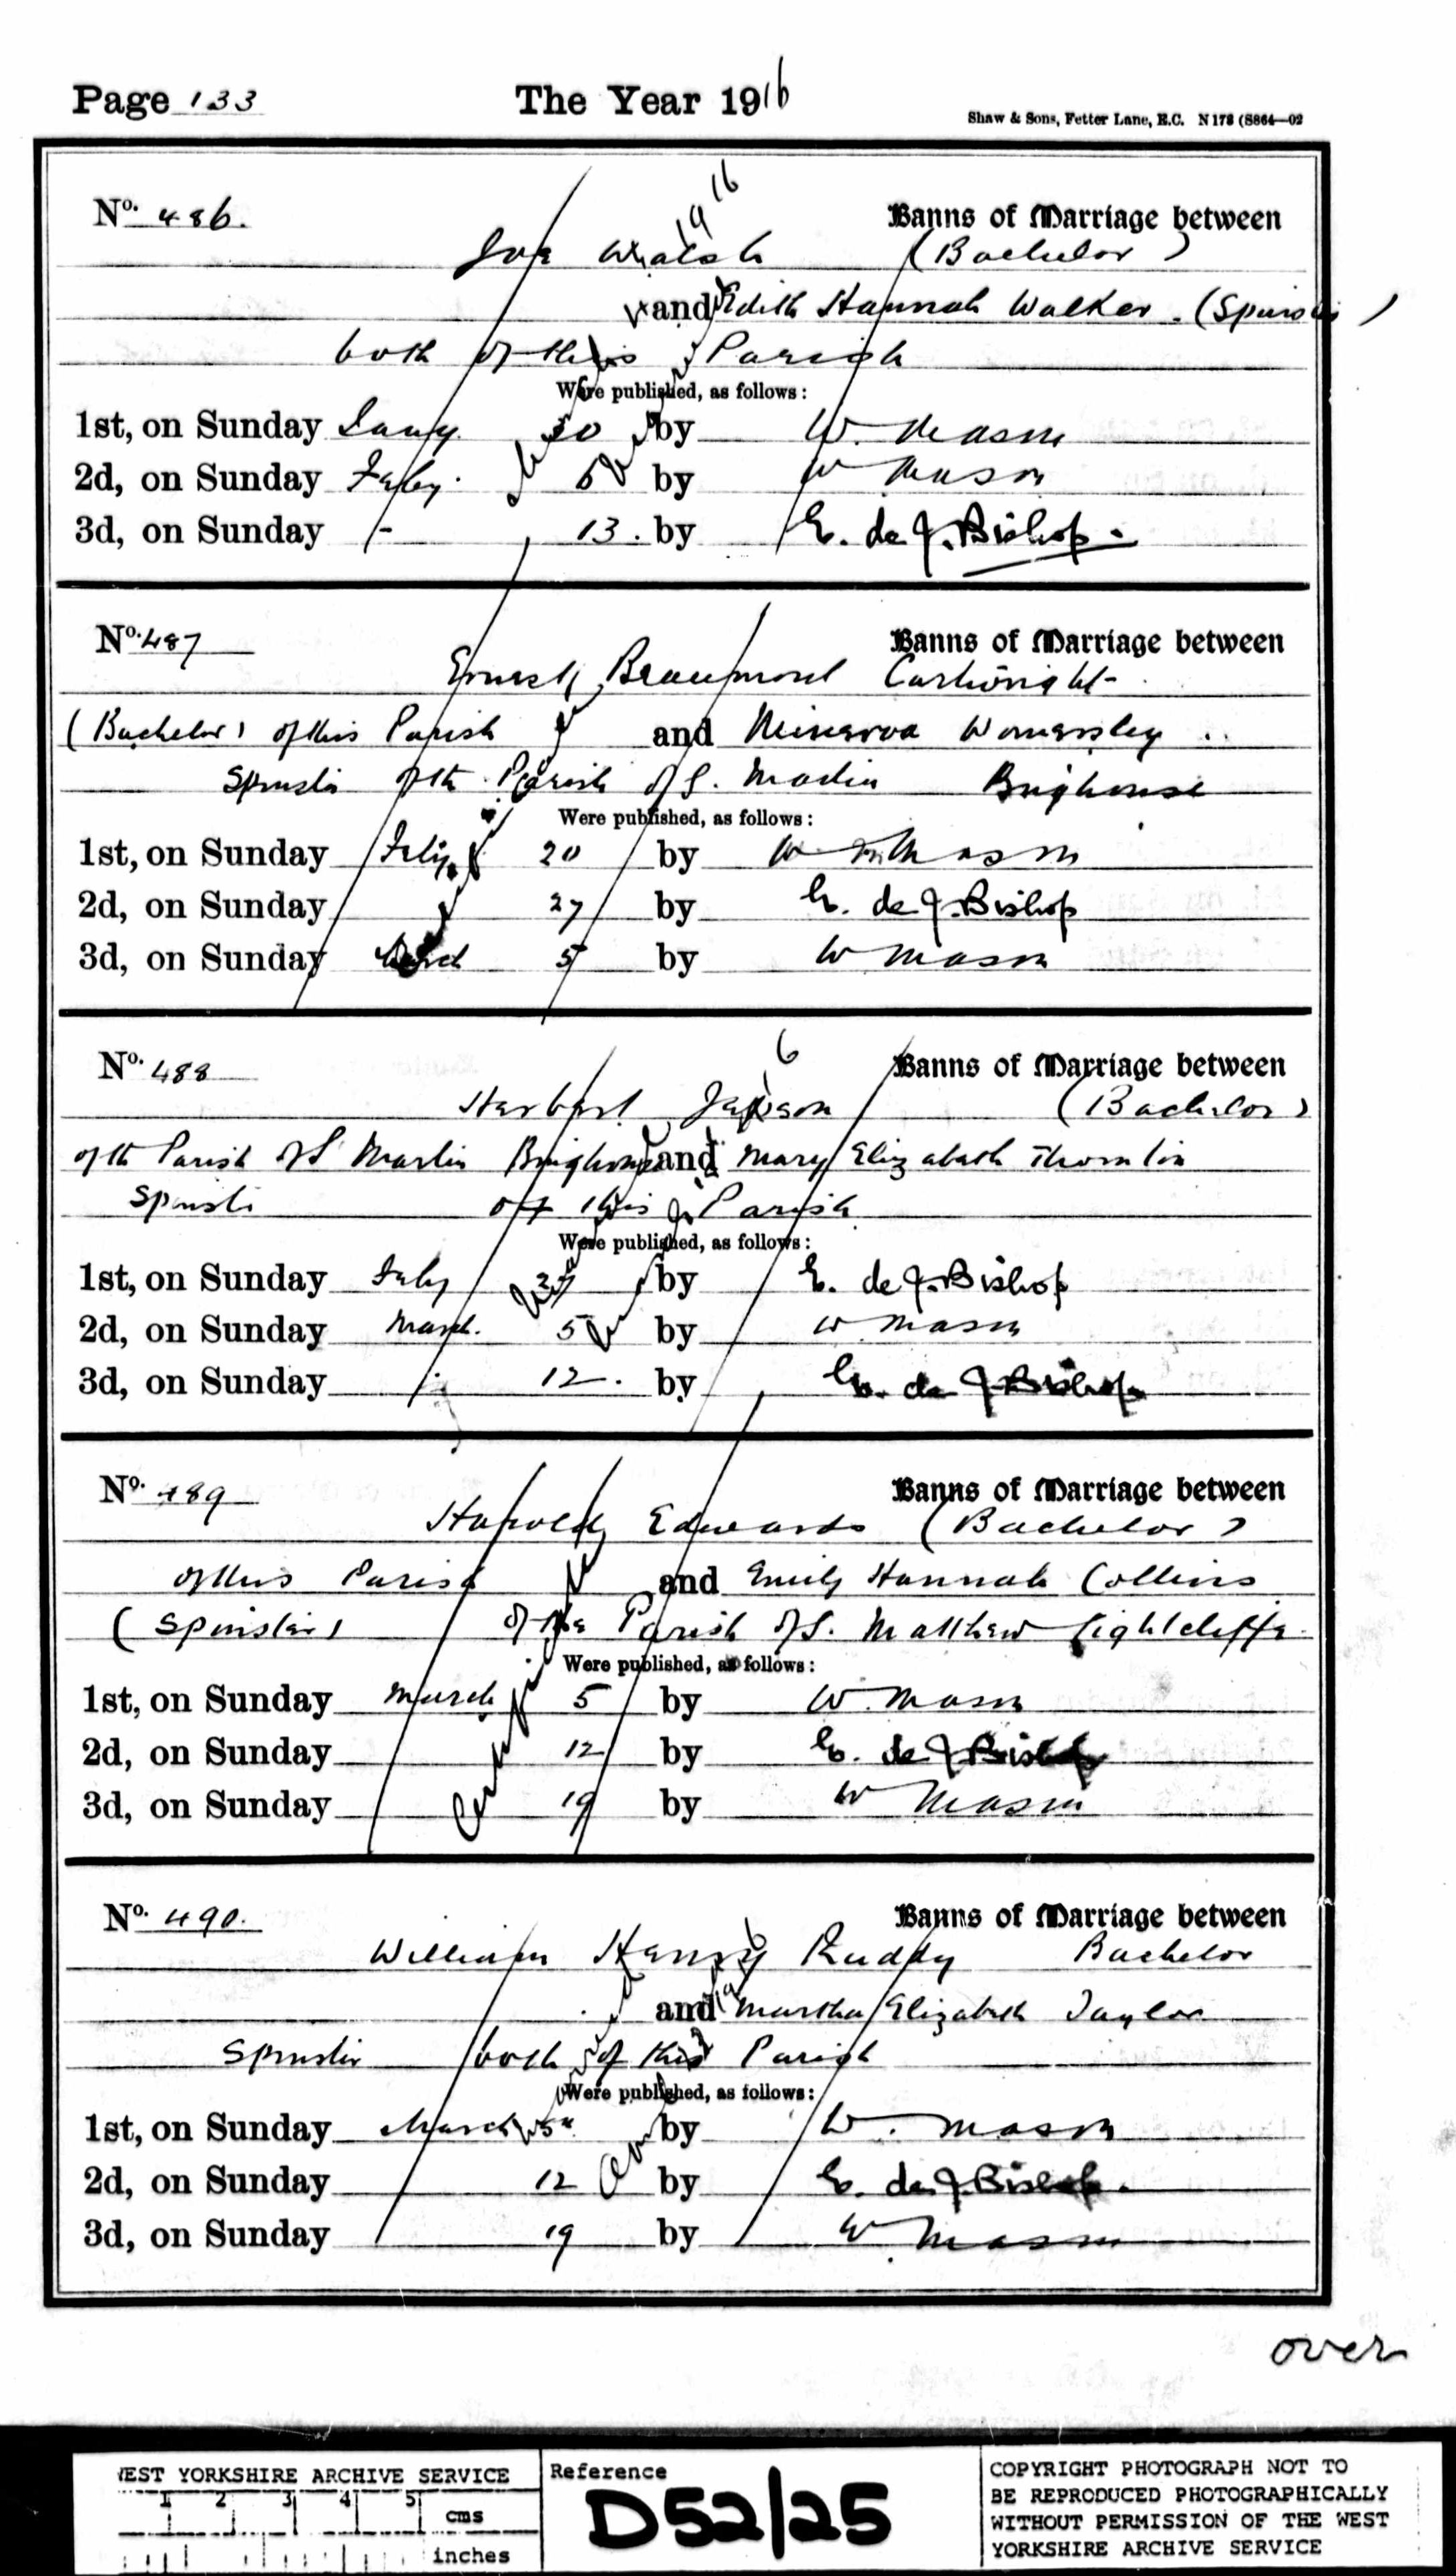 Page 133 The Year 1916
Shaw & Sons, Fetter Lane, E.C. N 178 (S864—02
No. 486. Banns of Marriage between
Joe Walsh (Bachelor)
and Edith Hannah Walker. (Spinster)
both of this Parish
Were published, as follows:
1st, on Sunday Jany. 30 by W. Mason
2d, on Sunday Feby. 6 by W Mason
3d, on Sunday - 13. by E. de J. Bishop.
1916
No. 487 Banns of Marriage between
Ernest Beaumont Cartwright
(Bachelor) of this Parish and Minerva Womersley
Spinster of the Parish of S. Martin Brighouse
Were published, as follows:
1st, on Sunday Feby. 20 by W Mason
2d, on Sunday 27 by E. de J. Bishop
3d, on Sunday March 5 by W Mason
No. 488 Banns of Marriage between
Herbert Jepson (Bachelor)
of the Parish of S Martin Brighouse and Mary Elizabeth Thornton
Spinster of this Parish
Were published, as follows:
1st, on Sunday Feby 27 by E. de J. Bishop
2d, on Sunday March. 5 by W Mason
3d, on Sunday 12. by E. de J. Bishop
No. 489 Banns of Marriage between
Harold Edwards (Bachelor)
of this Parish and Emily Hannah Collins
(Spinster) of the Parish of S. Matthew Lightcliffe
Were published, as follows:
1st, on Sunday March 5 by W. Mason
2d, on Sunday 12 by E. de J. Bishop
3d, on Sunday 19 by W Mason
No. 490. Banns of Marriage between
William Henry Ruddy Bachelor
and Martha Elizabeth Taylor
Spinster both of this Parish
Were published, as follows:
1st, on Sunday March 5 by W. Mason
2d, on Sunday 12 by E. de J. Bishop.
3d, on Sunday 19 by W Mason
over
WEST YORKSHIRE ARCHIVE SERVICE
1 2 3 4 5
cms
inches
Reference
D52/25
COPYRIGHT PHOTOGRAPH NOT TO
BE REPRODUCED PHOTOGRAPHICALLY
WITHOUT PERMISSION OF THE WEST
YORKSHIRE ARCHIVE SERVICE